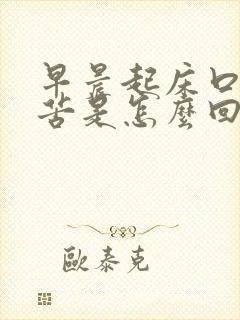 早晨起床口
苦是怎麼回
歐泰克